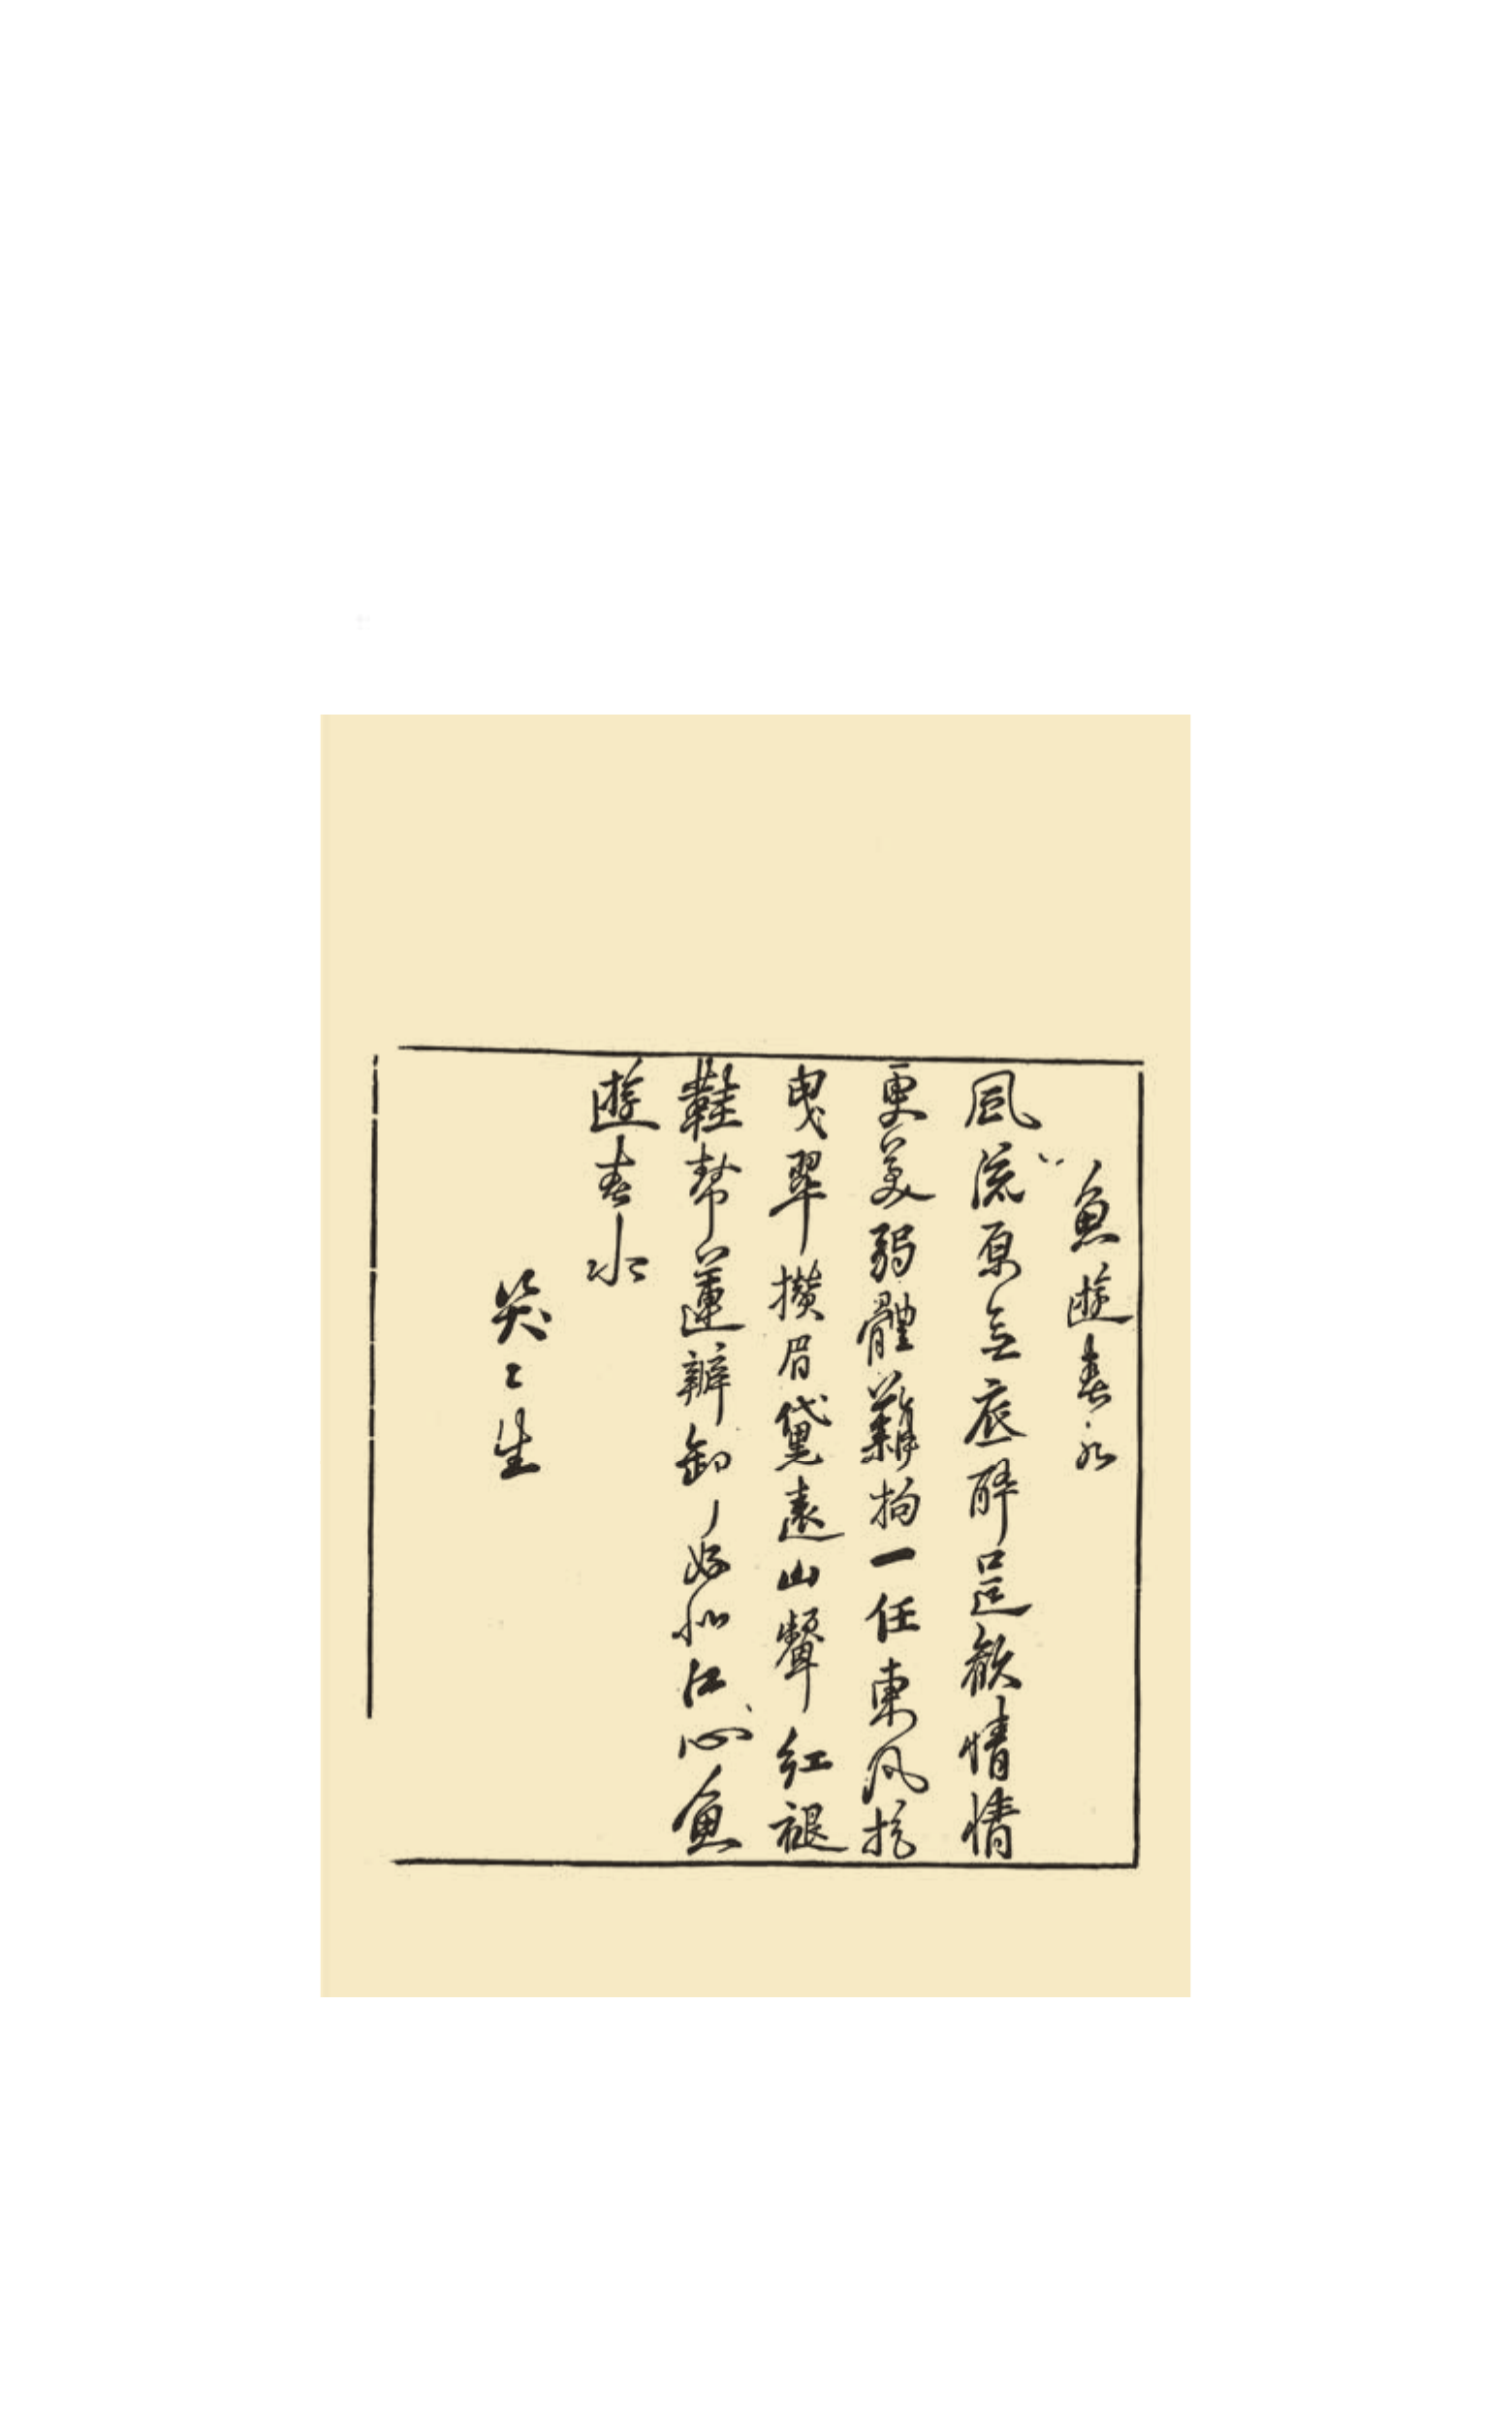 魚遊春水
風流原無底醉逞歡情情
更美弱體難拘一任東風擺
曳翠攢眉黛遠山顰紅褪
鞋幫蓮瓣卸好似江心魚
遊春水
笑〻生